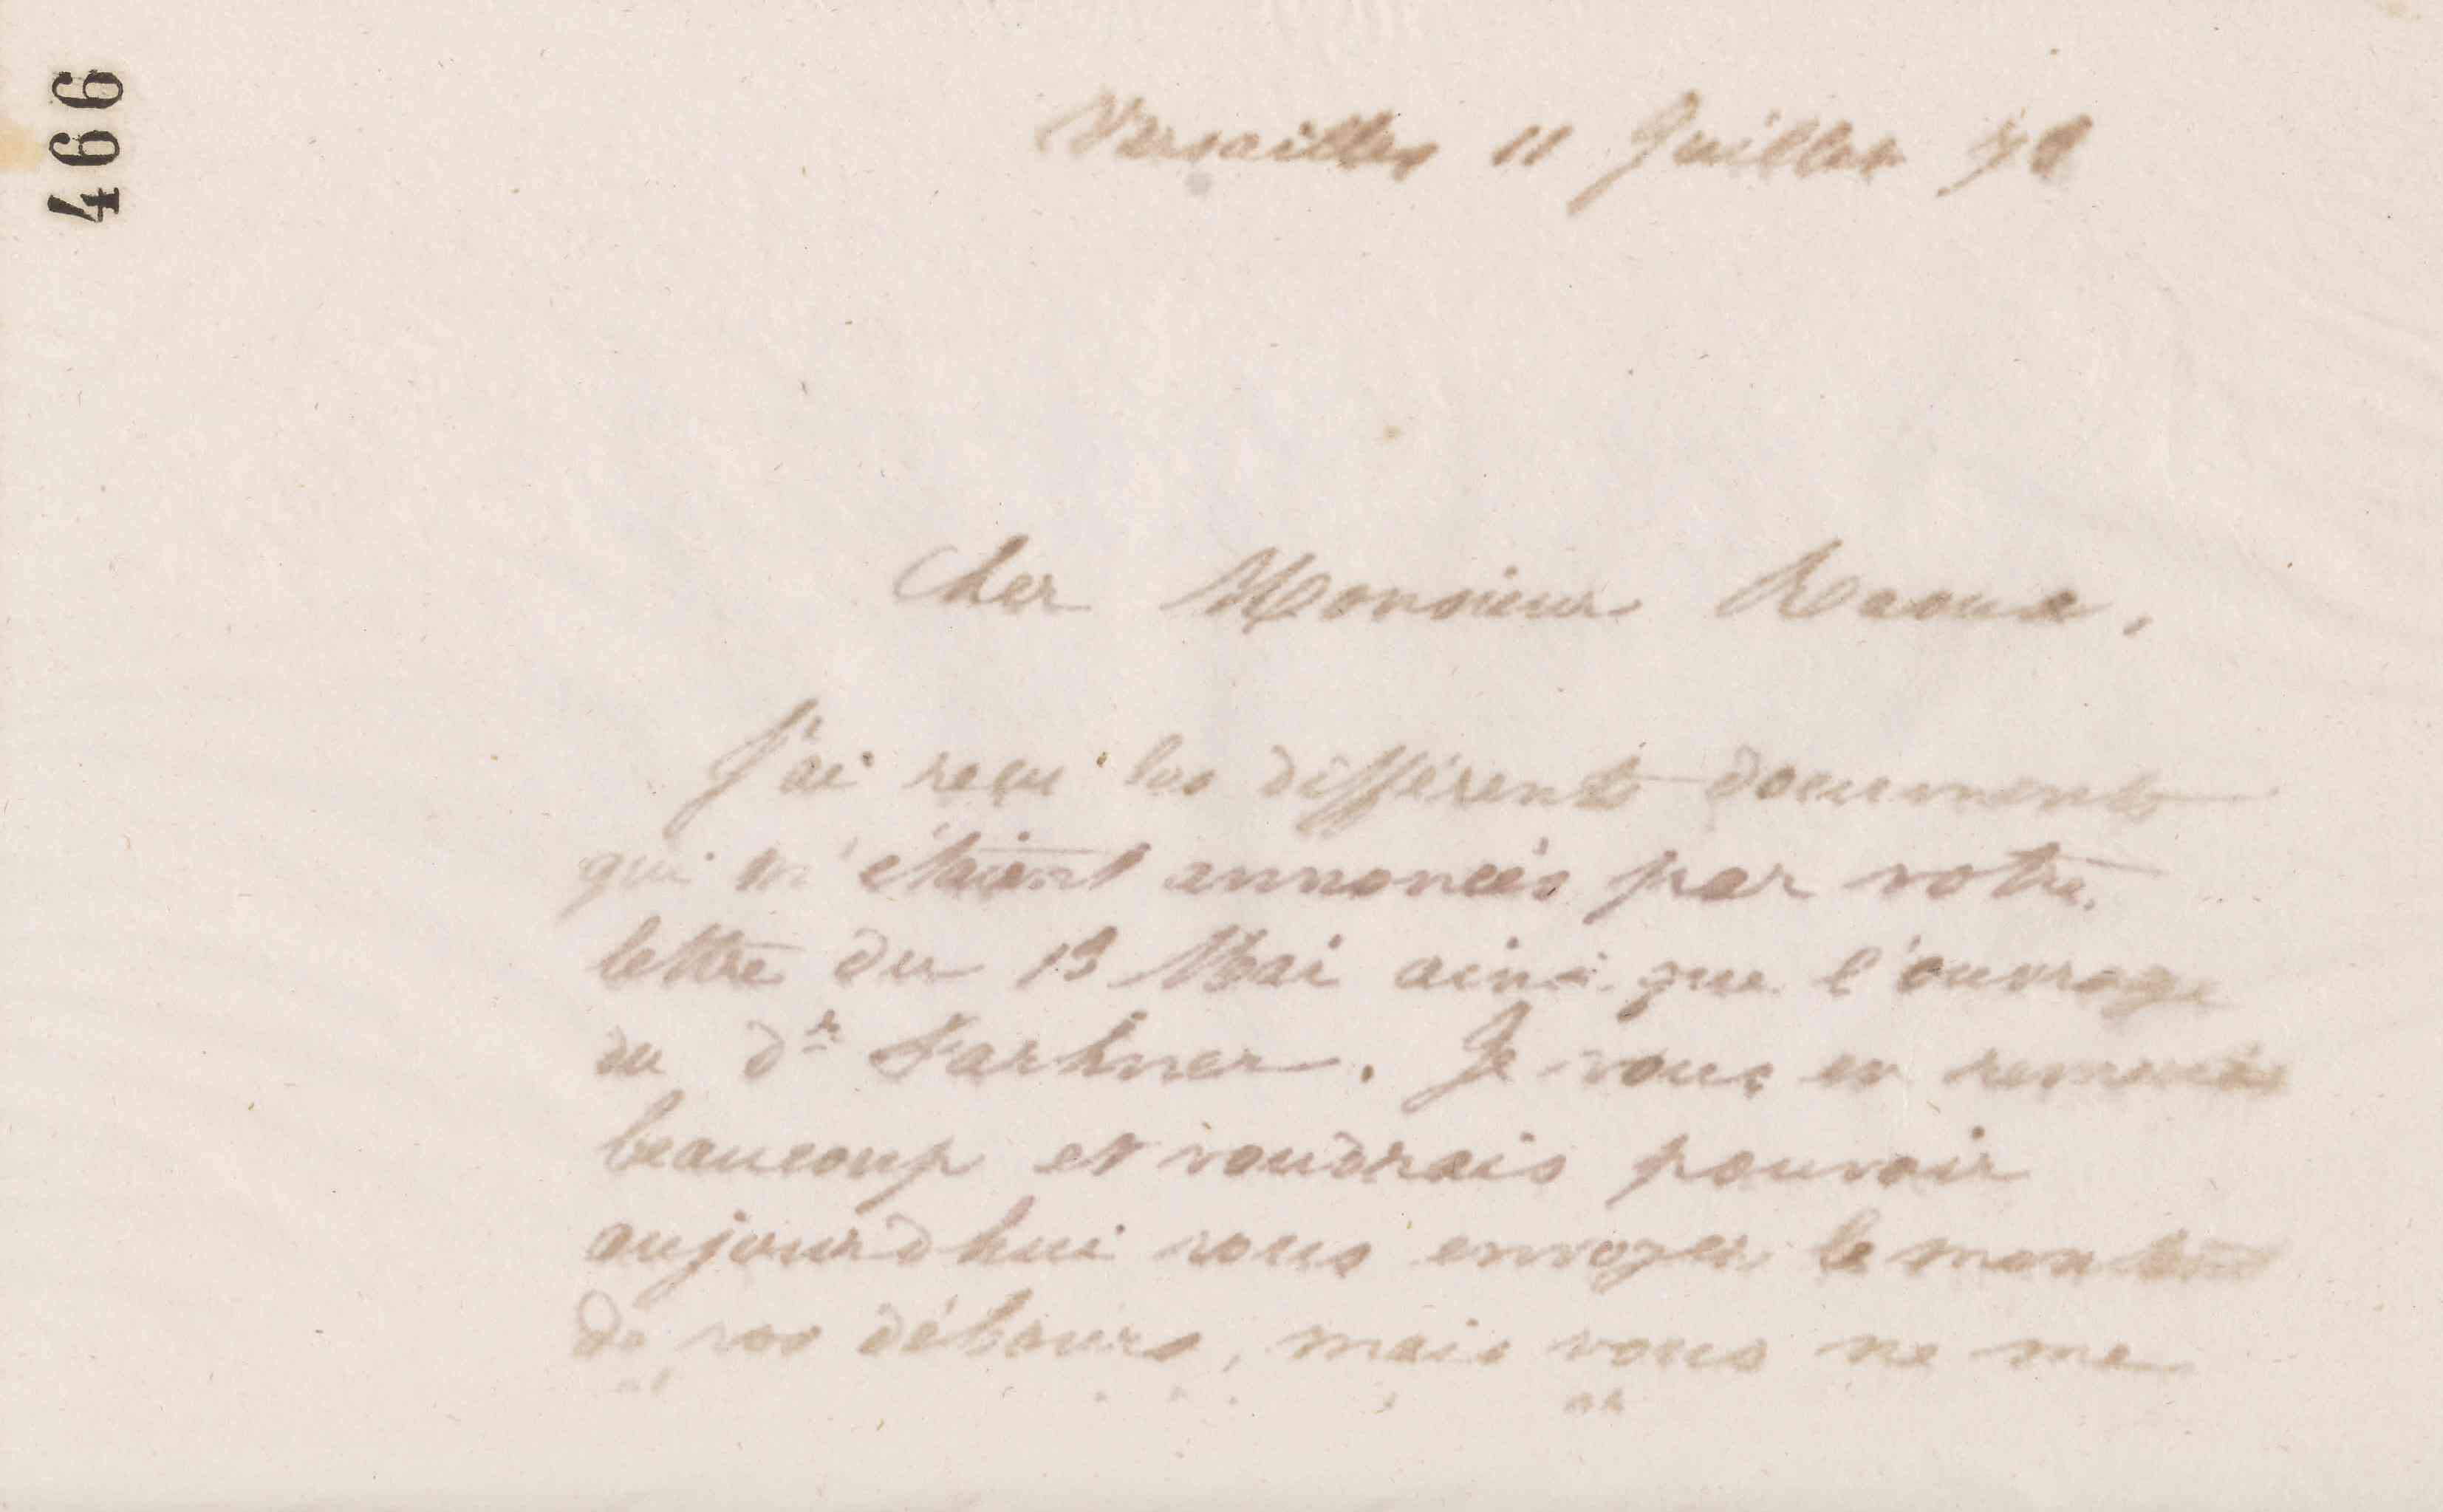 466
Versailles 11 Juillet 7
Cher Monsieur Raoux,
J'ai reçu les différents documents
qui m'étaient annoncés par votre
lettre du 13 Mai ainsi que l'ouvrage
du dr . Je vous en remercie
beaucoup et voudrais pouvoir
aujourd'hui vous envoyer le montant
de vos débours, mais vous ne me